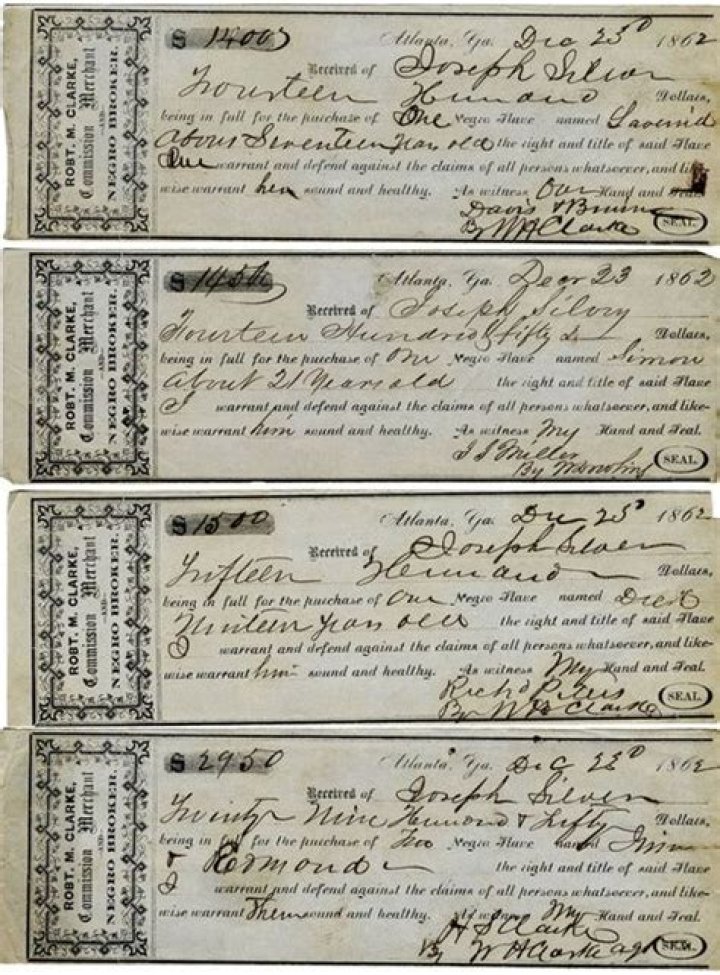 ROBT. M. CLARKE,
Commission Merchant
—AND—
NEGRO BROKER.
$ 1400
Atlanta, Ga. Dec 23d 1862
Received of Joseph Silver
Fourteen Hundred Dollars,
being in full for the purchase of One Negro Slave named
about Seventeen years old the right and title of said Slave
warrant and defend against the claims of all persons whatsoever, and like-
wise warrant her sound and healthy. As witness Our Hand and Seal.
Davis &
By W H Clarke SEAL.
ROBT. M. CLARKE,
Commission Merchant
—AND—
NEGRO BROKER.
$ 1450
Atlanta, Ga. 23 1862
Received of Joseph
Fourteen Hundred fifty Dollars,
being in full for the purchase of One Negro Slave named Simon
about 21 Years old the right and title of said Slave
I warrant and defend against the claims of all persons whatsoever, and like-
wise warrant him sound and healthy. As witness My Hand and Seal.
Miller
By SEAL.
ROBT. M. CLARKE,
Commission Merchant
—AND—
NEGRO BROKER.
$ 1500
Atlanta, Ga. Dec 1862
Received of Joseph Silver
Fifteen Hundred Dollars,
being in full for the purchase of One Negro Slave named
Nineteen years old the right and title of said Slave
I warrant and defend against the claims of all persons whatsoever, and like-
wise warrant him sound and healthy. As witness My Hand and Seal.
Richd
By W H Clarke SEAL.
ROBT. M. CLARKE,
Commission Merchant
—AND—
NEGRO BROKER.
$ 2950
Atlanta, Ga. Dec 1862
Received of Joseph Silver
Twenty Nine Hundred & Fifty Dollars,
being in full for the purchase of Two Negro Slave named
& Edmond the right and title of said Slave
I warrant and defend against the claims of all persons whatsoever, and like-
wise warrant Them sound and healthy. As witness My Hand and Seal.
H S Clarke
By W H Clarke agt SEAL.